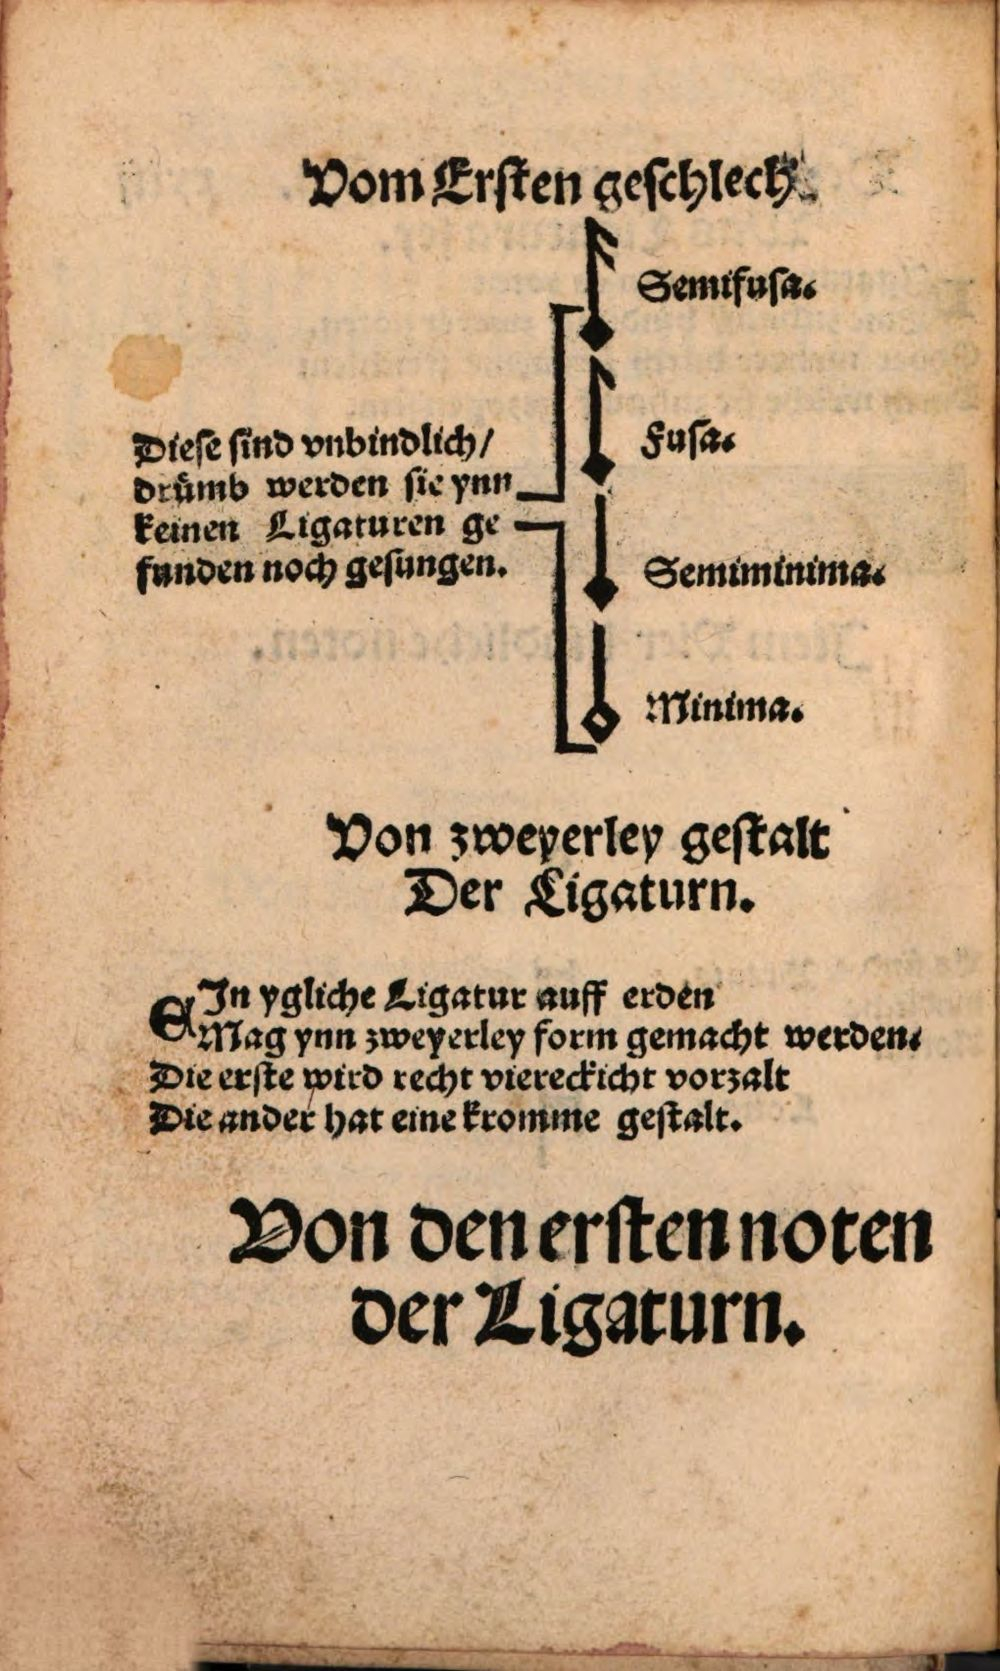 Vom Ersten geschlech.
Semifusa.
Fusa.
Diese sind vnbindlich/
drümb werden sie ynn
keinen Ligaturen ge
funden noch gesungen.
Semiminima.
Minima.
Von zweyerley gestalt
Der Ligaturn.
EIn ygliche Ligatur auff erden
Mag ynn zweyerley form gemacht werden.
Die erste wird recht viereckicht vorzalt
Die ander hat eine kromme gestalt.
Von den ersten noten
der Ligaturn.